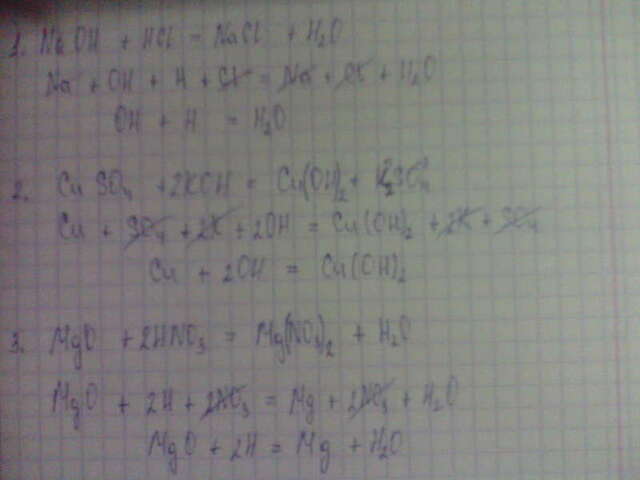 1. NaOH + HCl = NaCl + H₂O
Na + OH + H + Cl = Na + Cl + H₂O
OH + H = H₂O
2. CuSO₄ + 2KOH = Cu(OH)₂ + K₂SO₄
Cu + SO₄ + 2K + 2OH = Cu(OH)₂ + 2K + SO₄
Cu + 2OH = Cu(OH)₂
3. MgO + 2HNO₃ = Mg(NO₃)₂ + H₂O
MgO + 2H + 2NO₃ = Mg + 2NO₃ + H₂O
MgO + 2H = Mg + H₂O